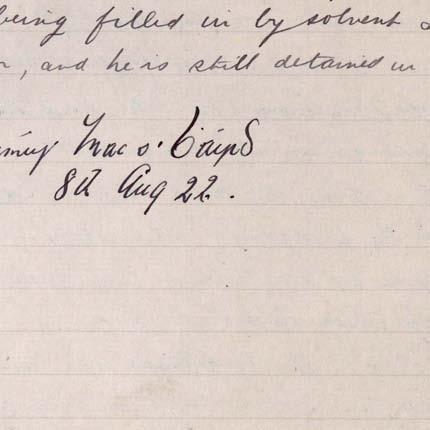 being filled in by solvent
, and he is still detained in
Mac
8th Aug 22.